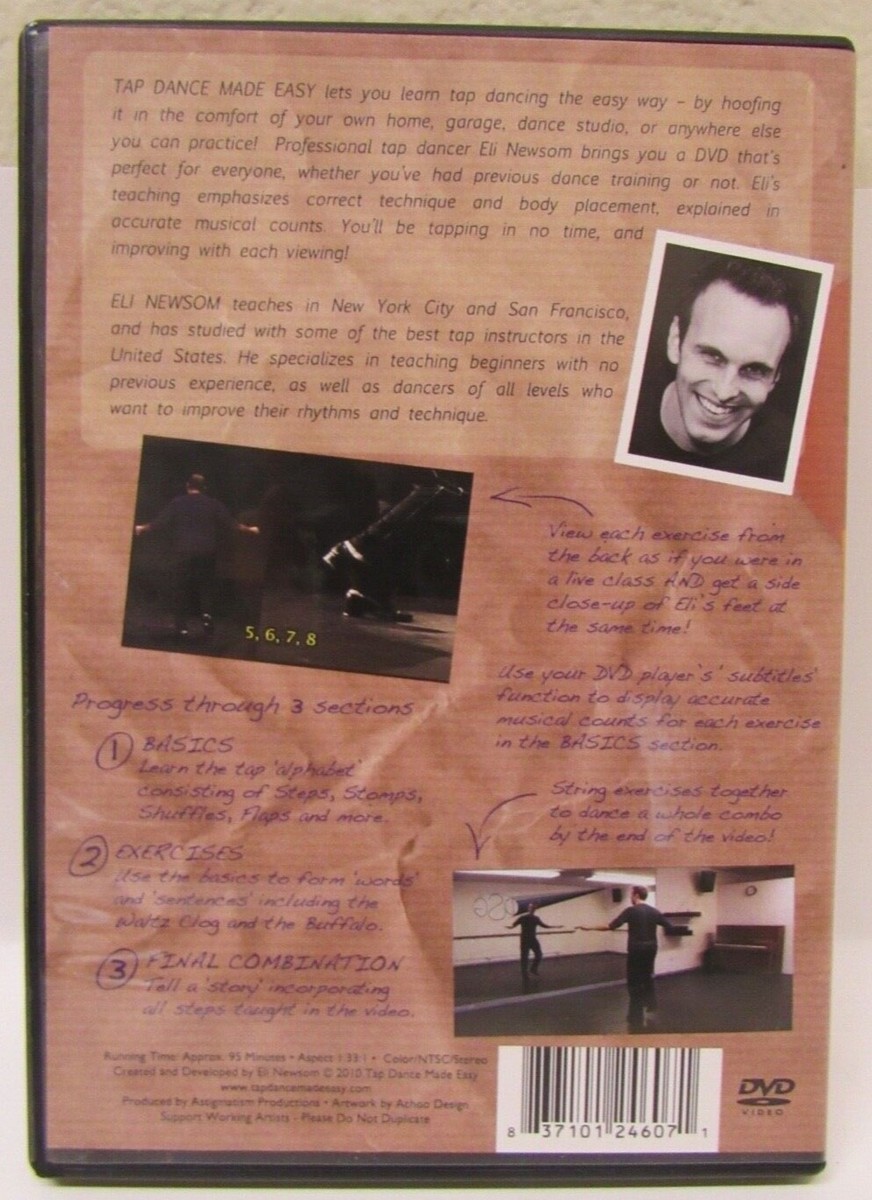 TAP DANCE MADE EASY lets you learn tap dancing the easy way – by hoofing
it in the comfort of your own home, garage, dance studio, or anywhere else
you can practice! Professional tap dancer Eli Newsom brings you a DVD that's
perfect for everyone, whether you've had previous dance training or not. Eli's
teaching emphasizes correct technique and body placement, explained in
accurate musical counts. You'll be tapping in no time, and
improving with each viewing!
ELI NEWSOM teaches in New York City and San Francisco,
and has studied with some of the best tap instructors in the
United States. He specializes in teaching beginners with no
previous experience, as well as dancers of all levels who
want to improve their rhythms and technique.
5, 6, 7, 8
View each exercise from
the back as if you were in
a live class AND get a side
close-up of Eli's feet at
the same time!
Use your DVD player's' subtitles'
function to display accurate
musical counts for each exercise
in the BASICS section.
Progress through 3 sections
1 BASICS
Learn the tap 'alphabet'
consisting of Steps, Stomps,
Shuffles, Flaps and more.
2 EXERCISES
Use the basics to form 'words'
and 'sentences' including the
Waltz Clog and the Buffalo.
3 FINAL COMBINATION
Tell a 'story' incorporating
all steps taught in the video.
String exercises together
to dance a whole combo
by the end of the video!
Running Time: Approx. 95 Minutes • Aspect 1.33:1 • Color/NTSC/Stereo
Created and Developed by Eli Newsom © 2010 Tap Dance Made Easy
www.tapdancemadeeasy.com
Produced by Astigmatism Productions • Artwork by Azhoo Design
Support Working Artists - Please Do Not Duplicate
8 37101 24607 1
DVD
VIDEO